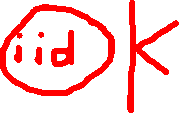 iid K